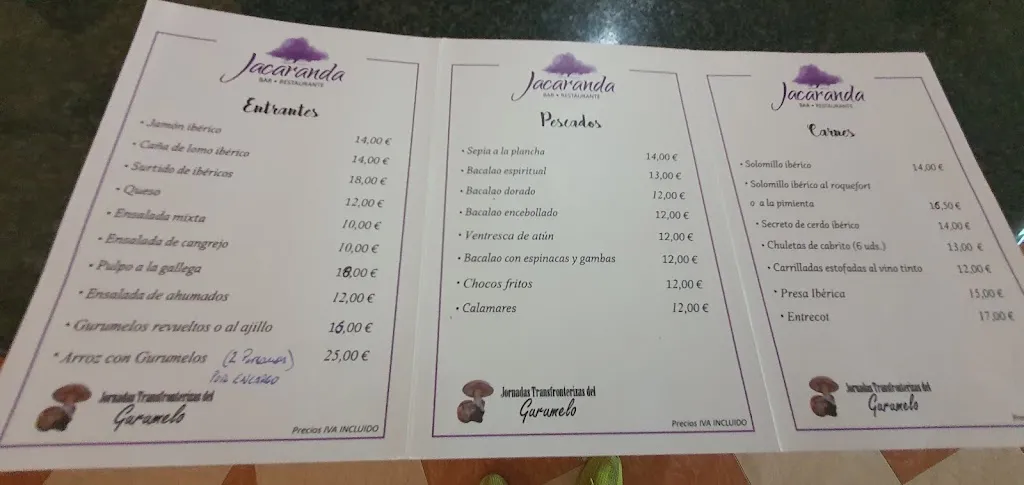 Jacaranda
BAR • RESTAURANTE
Entrantes
• Jamón ibérico 14,00 €
• Caña de lomo ibérico 14,00 €
• Surtido de ibéricos 18,00 €
• Queso 12,00 €
• Ensalada mixta 10,00 €
• Ensalada de cangrejo 10,00 €
• Pulpo a la gallega 18,00 €
• Ensalada de ahumados 12,00 €
• Gurumelos revueltos o al ajillo 16,00 €
• Arroz con Gurumelos (2 Personas) 25,00 €
POR ENCARGO
Jornadas Transfronterizas del
Gurumelo
Precios IVA INCLUIDO
Jacaranda
BAR • RESTAURANTE
Pescados
• Sepia a la plancha 14,00 €
• Bacalao espiritual 13,00 €
• Bacalao dorado 12,00 €
• Bacalao encebollado 12,00 €
• Ventresca de atún 12,00 €
• Bacalao con espinacas y gambas 12,00 €
• Chocos fritos 12,00 €
• Calamares 12,00 €
Jornadas Transfronterizas del
Gurumelo
Precios IVA INCLUIDO
Jacaranda
BAR • RESTAURANTE
Carnes
• Solomillo ibérico 14,00 €
• Solomillo ibérico al roquefort
o a la pimienta 16,50 €
• Secreto de cerdo ibérico 14,00 €
• Chuletas de cabrito (6 uds.) 13,00 €
• Carrilladas estofadas al vino tinto 12,00 €
• Presa Ibérica 15,00 €
• Entrecot 17,00 €
Jornadas Transfronterizas del
Gurumelo